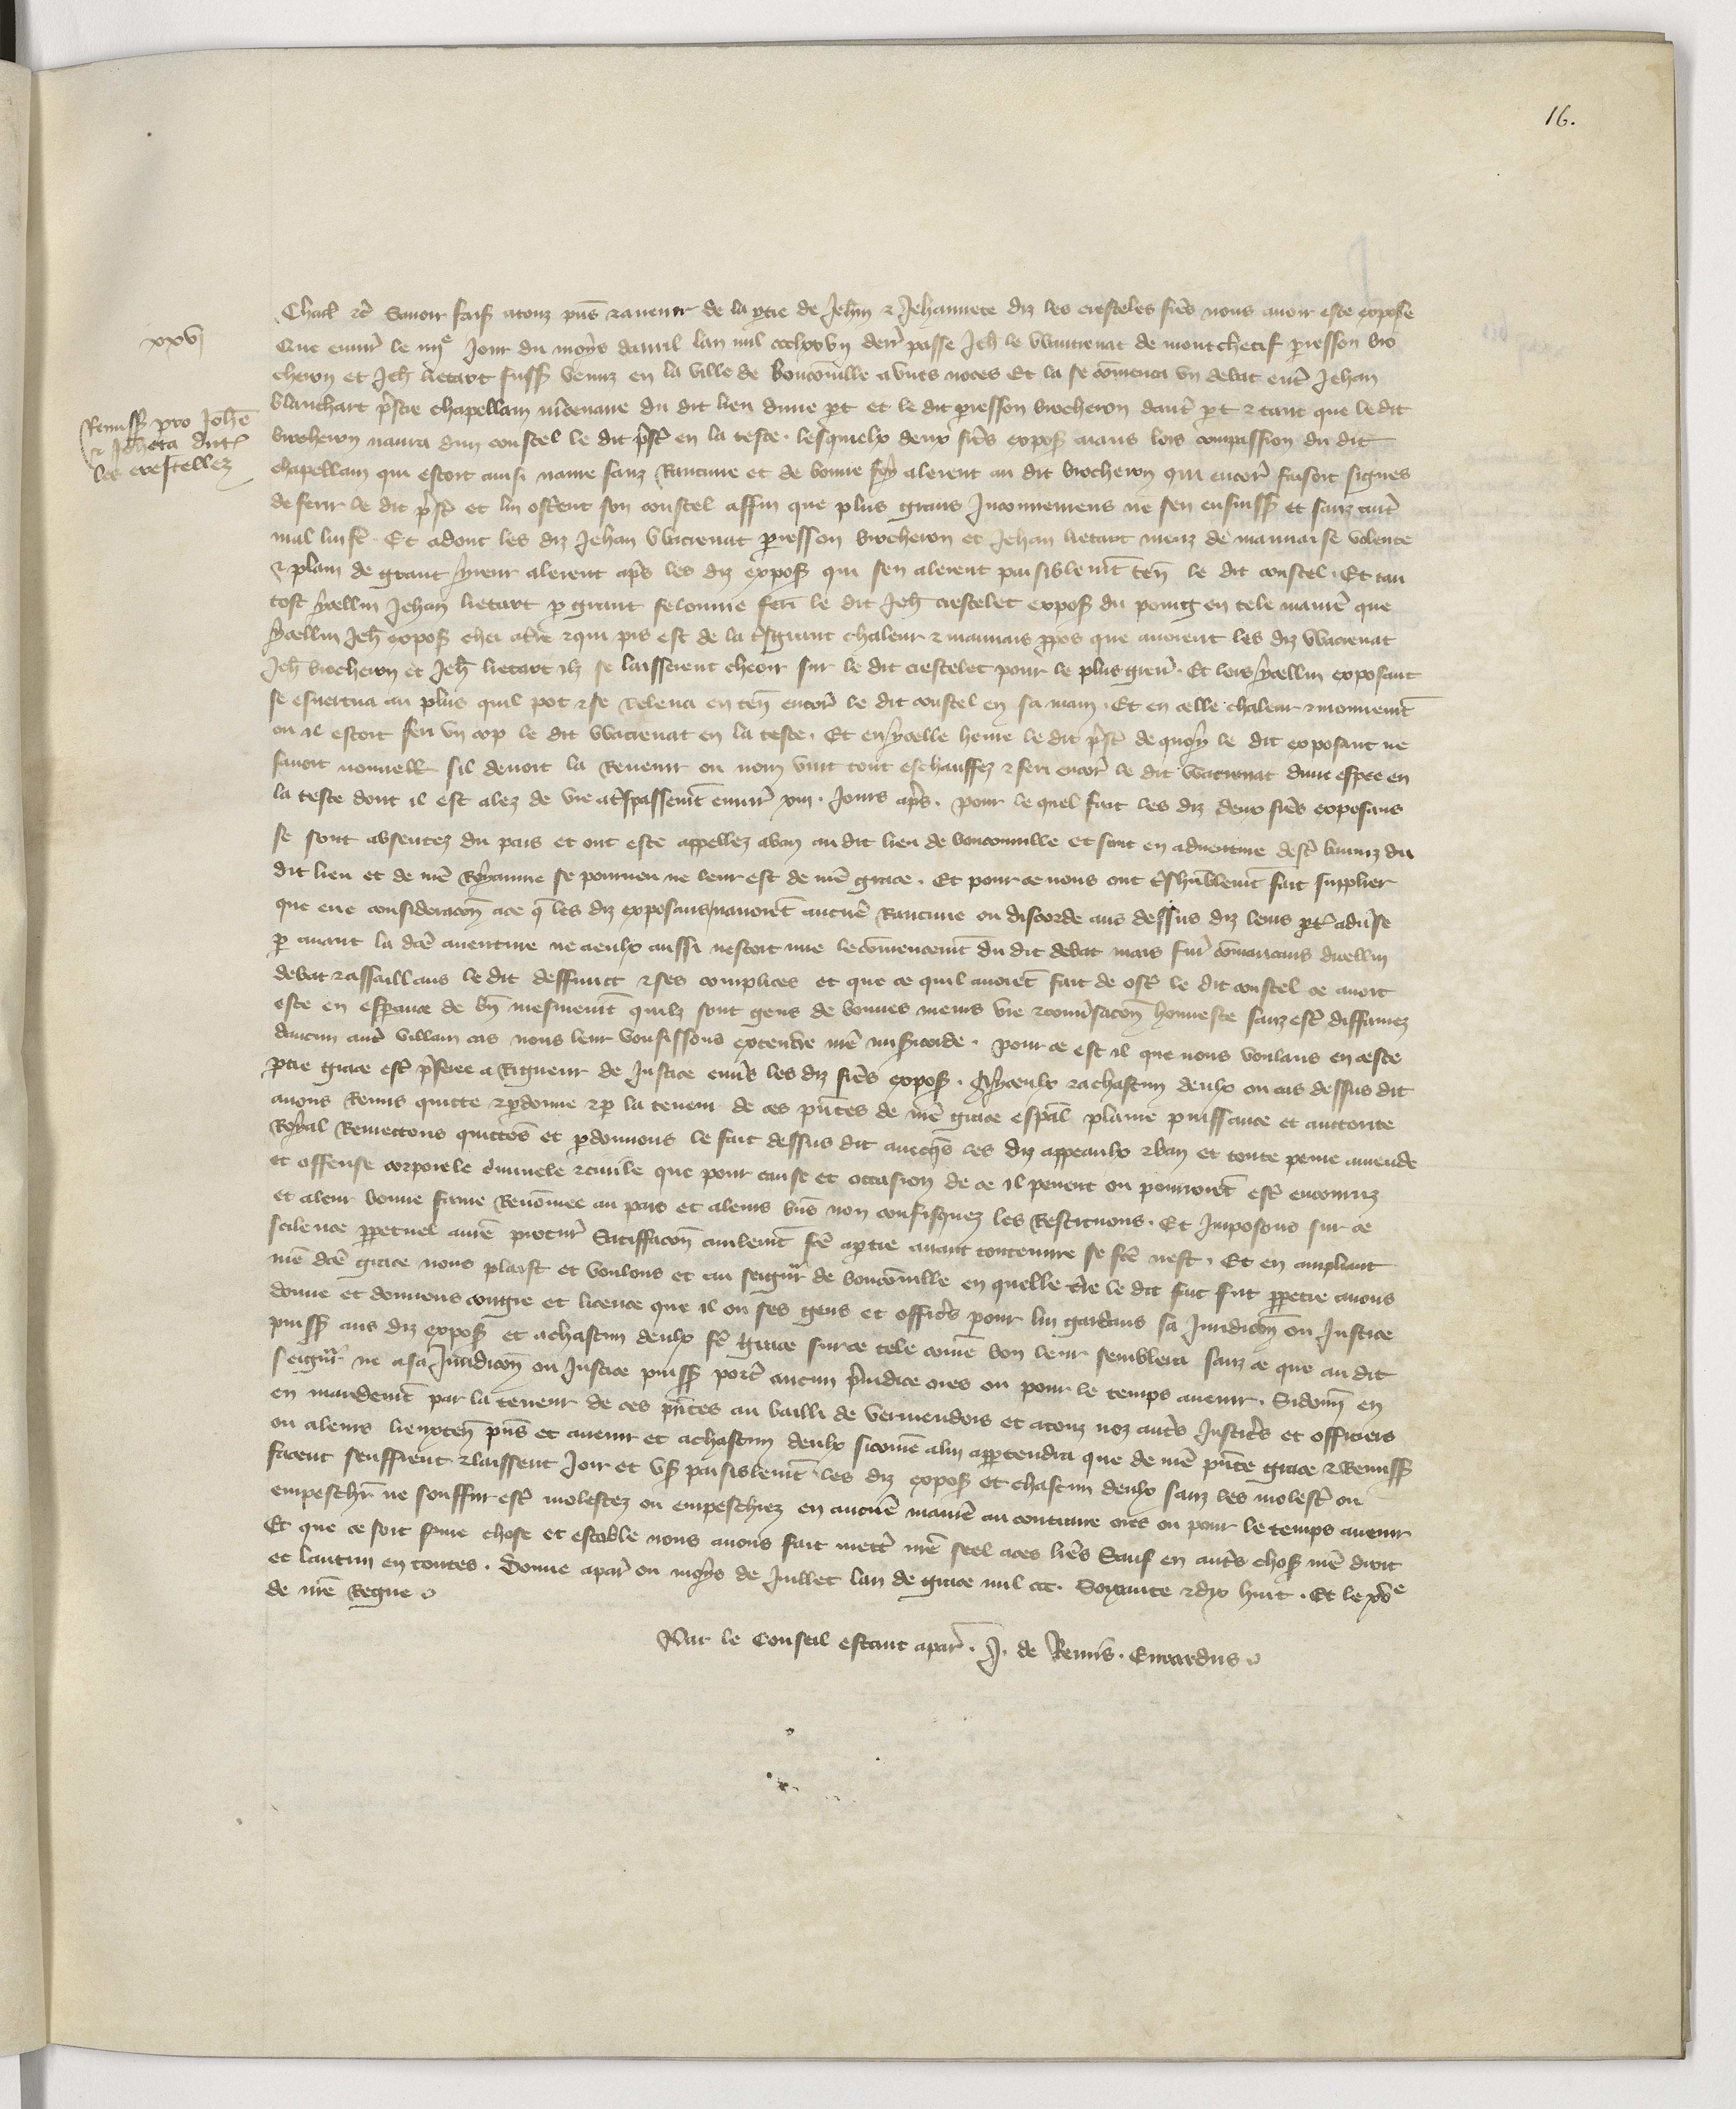 16.
xxvj
Remiss pro Johe
et Joheta dictis
les crestellez
Charl etc Savoir fais atouz pns et avenir de la ptie de Jehan et Jehannete diz les cresteles freres nous avoir este expose
Que envir le iiije Jour du moys davril lan mil ccclxxvij derr passe Jeh le Wautrenat de montchetif piesson bro
cheron et Jeh lietart fuss venuz en la ville de bouconville a unes noces Et la se comenca un debat entre Jehan
blanchart prestre chapellain du dit lieu dune pt et le dit piesson brocheron dautre pt et tant que le dit
brocheron navra dun coustel le dit prestre en la teste. lesquielx deux freres expos aians lors compassion du dit
chapellain qui estoit ainsi navre sanz Rancune et de bonne foy alerent au dit brocheron qui encore faisoit signes
de ferir le dit prestre et lui osterent son coustel affin que plus grans Inconveniens ne sen ensuiss et sanz autre
mal lui fe. Et adont les diz Jehan Watrenat piesson brocheron et Jehan lietart meuz de mauvaise volente
et plain de grant yreur alerent apres les diz expos qui sen alerent paisiblemt ten le dit coustel. Et tan
tost ycellui Jehan lietart p grant felonnie feri le dit Jeh crestelet expos du poing en tele maniere que
ycellui Jeh expos chei a terre et qui pis est de la tresgrant chaleur et mauvais ppos que avoient les diz Watrenat
Jeh brocheron et Jeh lietart ilz se laisserent cheoir sur le dit crestelet pour le plus grever. Et lors ycellui exposant
se esvertua au plus quil pot et se releva en ten encore le dit coustel en sa main. Et en celle chaleur et mouvemt
ou il estoit feri un cop le dit Watrenat en la teste. Et en ycelle heure le dit prestre de quoy le dit exposant ne
savoit nouvell sil devoit la Revenir ou non vint tout eschauffez et feri encore le dit Watrenat dune espee en
la teste dont il est alez de vie a trespassemt envir xiij. Jours apres. pour le quel fait les diz deux freres exposans
se sont absentez du pais et ont este appellez a ban au dit lieu de bouconville et sont en adventure destre banniz du
dit lieu et de nre Royaume se pourveu ne leur est de nre grace. Et pour ce nous ont treshumblemt fait supplier
que eue consideracon a ce q les diz exposans navoient aucune Rancune ou discorde aus dessus diz leurs pt adverse
p avant la dce aventure ne a eulx aussi nestoit mie le comencemt du dit debat mais fur comancans dicellui
debat et assaillans le dit deffunct et ses complices et que ce quil avoient fait de oster le dit coustel ce avoit
este en esperance de bn mesmemt quilz sont gens de bonnes meurs vie et conversacon honneste sanz estre diffamez
daucun autre villain cas nous leur voulsissons extendre nre misericorde. pour ce est il que nous voulans en ceste
ptie grace estre pferee a Rigueur de Justice envers les diz freres expos. A yceulx et a chascun deulx ou cas dessus dit
avons Remis quitte et pdonne et p la teneur de ces pntes de nre grace espal plaine puissance et auctorite
Royal Remettons quittons et pdonnons le fait dessus dit avecqs les diz appeaulx et ban et toute peine amende
et offense corporele criminele et civile que pour cause et occasion de ce il pevent ou pourroient estre encouruz
et a leur bonne fame Renommee au pais et a leurs bns non confisquez les Restituons. Et Imposons sur ce
scilence ppetuel a nre procur Satiffacon civilemt fce a ptie avant toute euvre se fce nest. Et en ampliant
nre dce grace nous plaist et voulons et au seigneur de bouconville en quelle terre le dit fait fut ppetre avons
donne et donnons congie et licence que il ou ses gens et officrs pour lui gardans sa Juridicon ou Justice
puiss aus diz expos et a chascun deulx fe grace sur ce tele come bon leur semblera sanz ce que au dit
seigneur ne a sa Juridicon ou Justice puiss porter aucun prejudice ores ou pour le temps avenir. Si donn en
en mandemt par la teneur de ces pntes au bailli de vermendois et a touz noz autres Justicrs et officiers
ou a leurs lieuxten pns et avenir et a chascun deulx si come a lui apptendra que de nre pnte grace et Remiss
facent seuffrent et laissent Joir et us paisiblemt les diz expos et chascun deulx sanz les molester ou
empescher ne souffrir estre molestez ou empeschiez en aucune maniere au contraire ores ou pour le temps avenir
Et que ce soit ferme chose et estable nous avons fait mettre nre seel a ces lres Sauf en autres chos nre droit
et lautrui en toutes. Donne a par ou moys de Juillet lan de grace mil ccc. Soixante et dix huit. Et le xve
de nre Regne
Par le Conseil estant a par. J. de Remis. Euvrardus